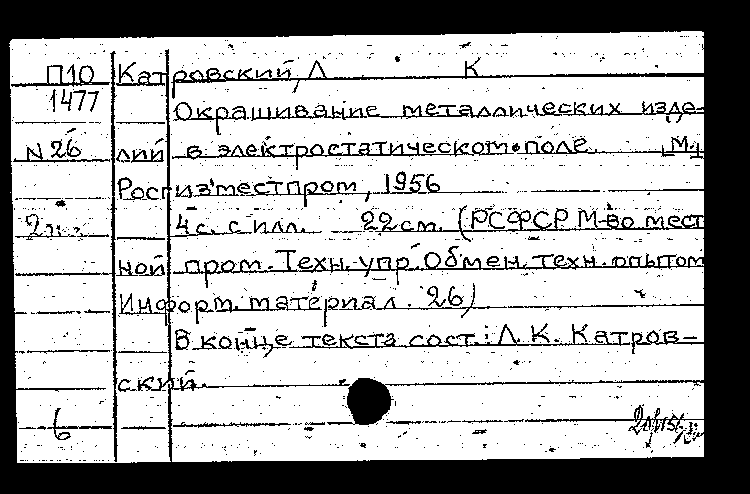 П10 Катровский, Л К
1477
Окрашивание металлических изде-
N 26 лий в электростатическом поле. [М.]
Росгизместпром, 1956
4 с. с илл. 22 см. (РСФСР М-во мест
ной пром. Техн. упр. Обмен. техн. опытом
Информ. материал. 26)
В конце текста сост.: Л. К. Катров-
ский.
6